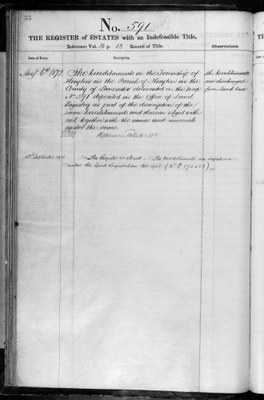 33
No. 591
THE REGISTER of ESTATES with an Indefeasible Title.
Reference Vol. p. Record of Title.
Observations.
Date of Entry.
Description.
Augt 6th 1873
The hereditaments in the Township of
in the Parish of in the
County of Lancaster delineated in the map
No 591 deposited in the Office of Land
Registry as part of the description of the
same hereditaments and therein edged with
red together with the mines and minerals
under the same
the hereditaments
are discharged
from Land tax
September
The Register is closed. The hereditaments are registered
under the Land Registration Act 1925